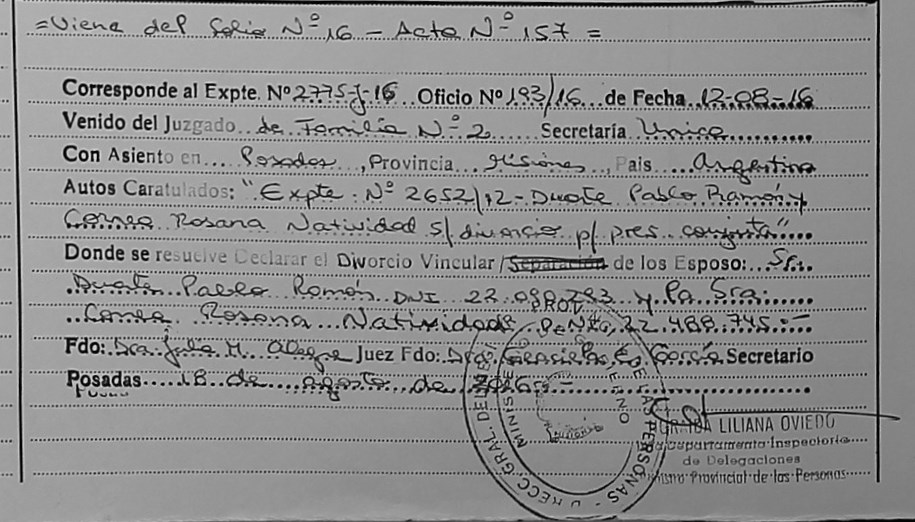 =Viene del folio Nº 16 - Acta Nº 157 =
Corresponde al Expte. Nº 2775-J-16 Oficio Nº 193/16 de Fecha 12-08-16
Venido del Juzgado de Familia Nº 2 Secretaría Unica
Con Asiento en Posadas, Provincia Misiones, Pais Argentina
Autos Caratulados: "Expte. Nº 2652/12 - Duarte Pablo Ramón y
Correa Rosana Natividad s/ divorcio p/ pres. conjunta"
Donde se resuelve Declarar el Divorcio Vincular / Separación de los Esposo: Sr.
Duarte Pablo Ramón DNI 22. y la Sra.
Correa Rosana Natividad DNI Nº 22.488.745.-
Fdo: Dra. Julia M. Alegre Juez Fdo: Dra. Graciela E. García Secretario
Posadas 18 de agosto de 2016.-
LILIANA OVIEDO
Departamento Inspectoria
de Delegaciones
Registro Provincial de las Personas
DIRECC. GRAL DEL REG. PROV. DE LAS PERSONAS